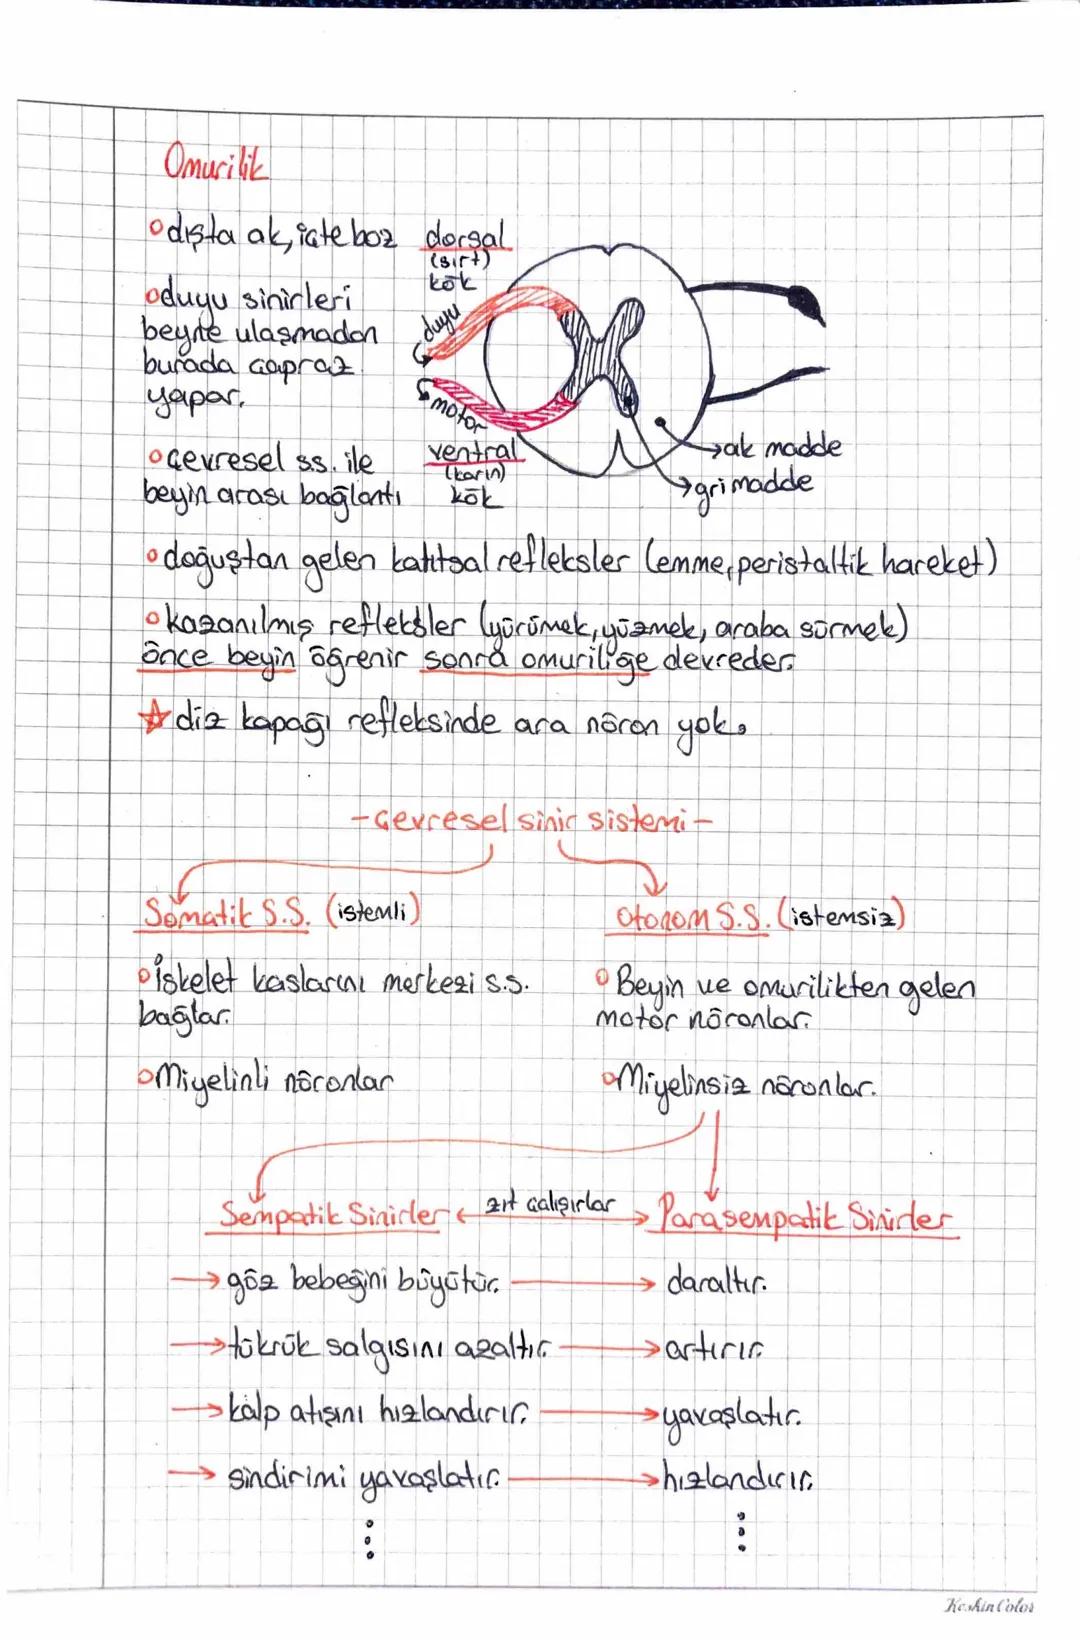 Omurilik
dışta ak, içte boz
duyu sinirleri
beyne ulaşmadan
burada çapraz
yapar.
çevresel ss. ile
beyin arası bağlantı
dorsal
(sırt)
kök
duyu
motor
ventral
(karın)
kök
ak madde
gri madde
doğuştan gelen kalıtsal refleksler (emme, peristaltik hareket)
kazanılmış refleksler (yürümek, yüzmek, araba sürmek)
önce beyin öğrenir sonra omuriliğe devreder.
☆ diz kapağı refleksinde ara nöron yok.
-çevresel sinir sistemi-
Somatik S.S. (istemli)
İskelet kaslarını merkezi s.s.
bağlar.
Miyelinli nöronlar
Otonom S.S. (istemsiz)
Beyin ve omurilikten gelen
motor nöronlar.
Miyelinsiz nöronlar.
Sempatik Sinirler ← zıt çalışırlar → Parasempatik Sinirler
→ göz bebeğini büyütür. → daraltır.
→ tükrük salgısını azaltır. → artırır.
→ kalp atışını hızlandırır. → yavaşlatır.
→ sindirimi yavaşlatır. → hızlandırır.
Keskin Color